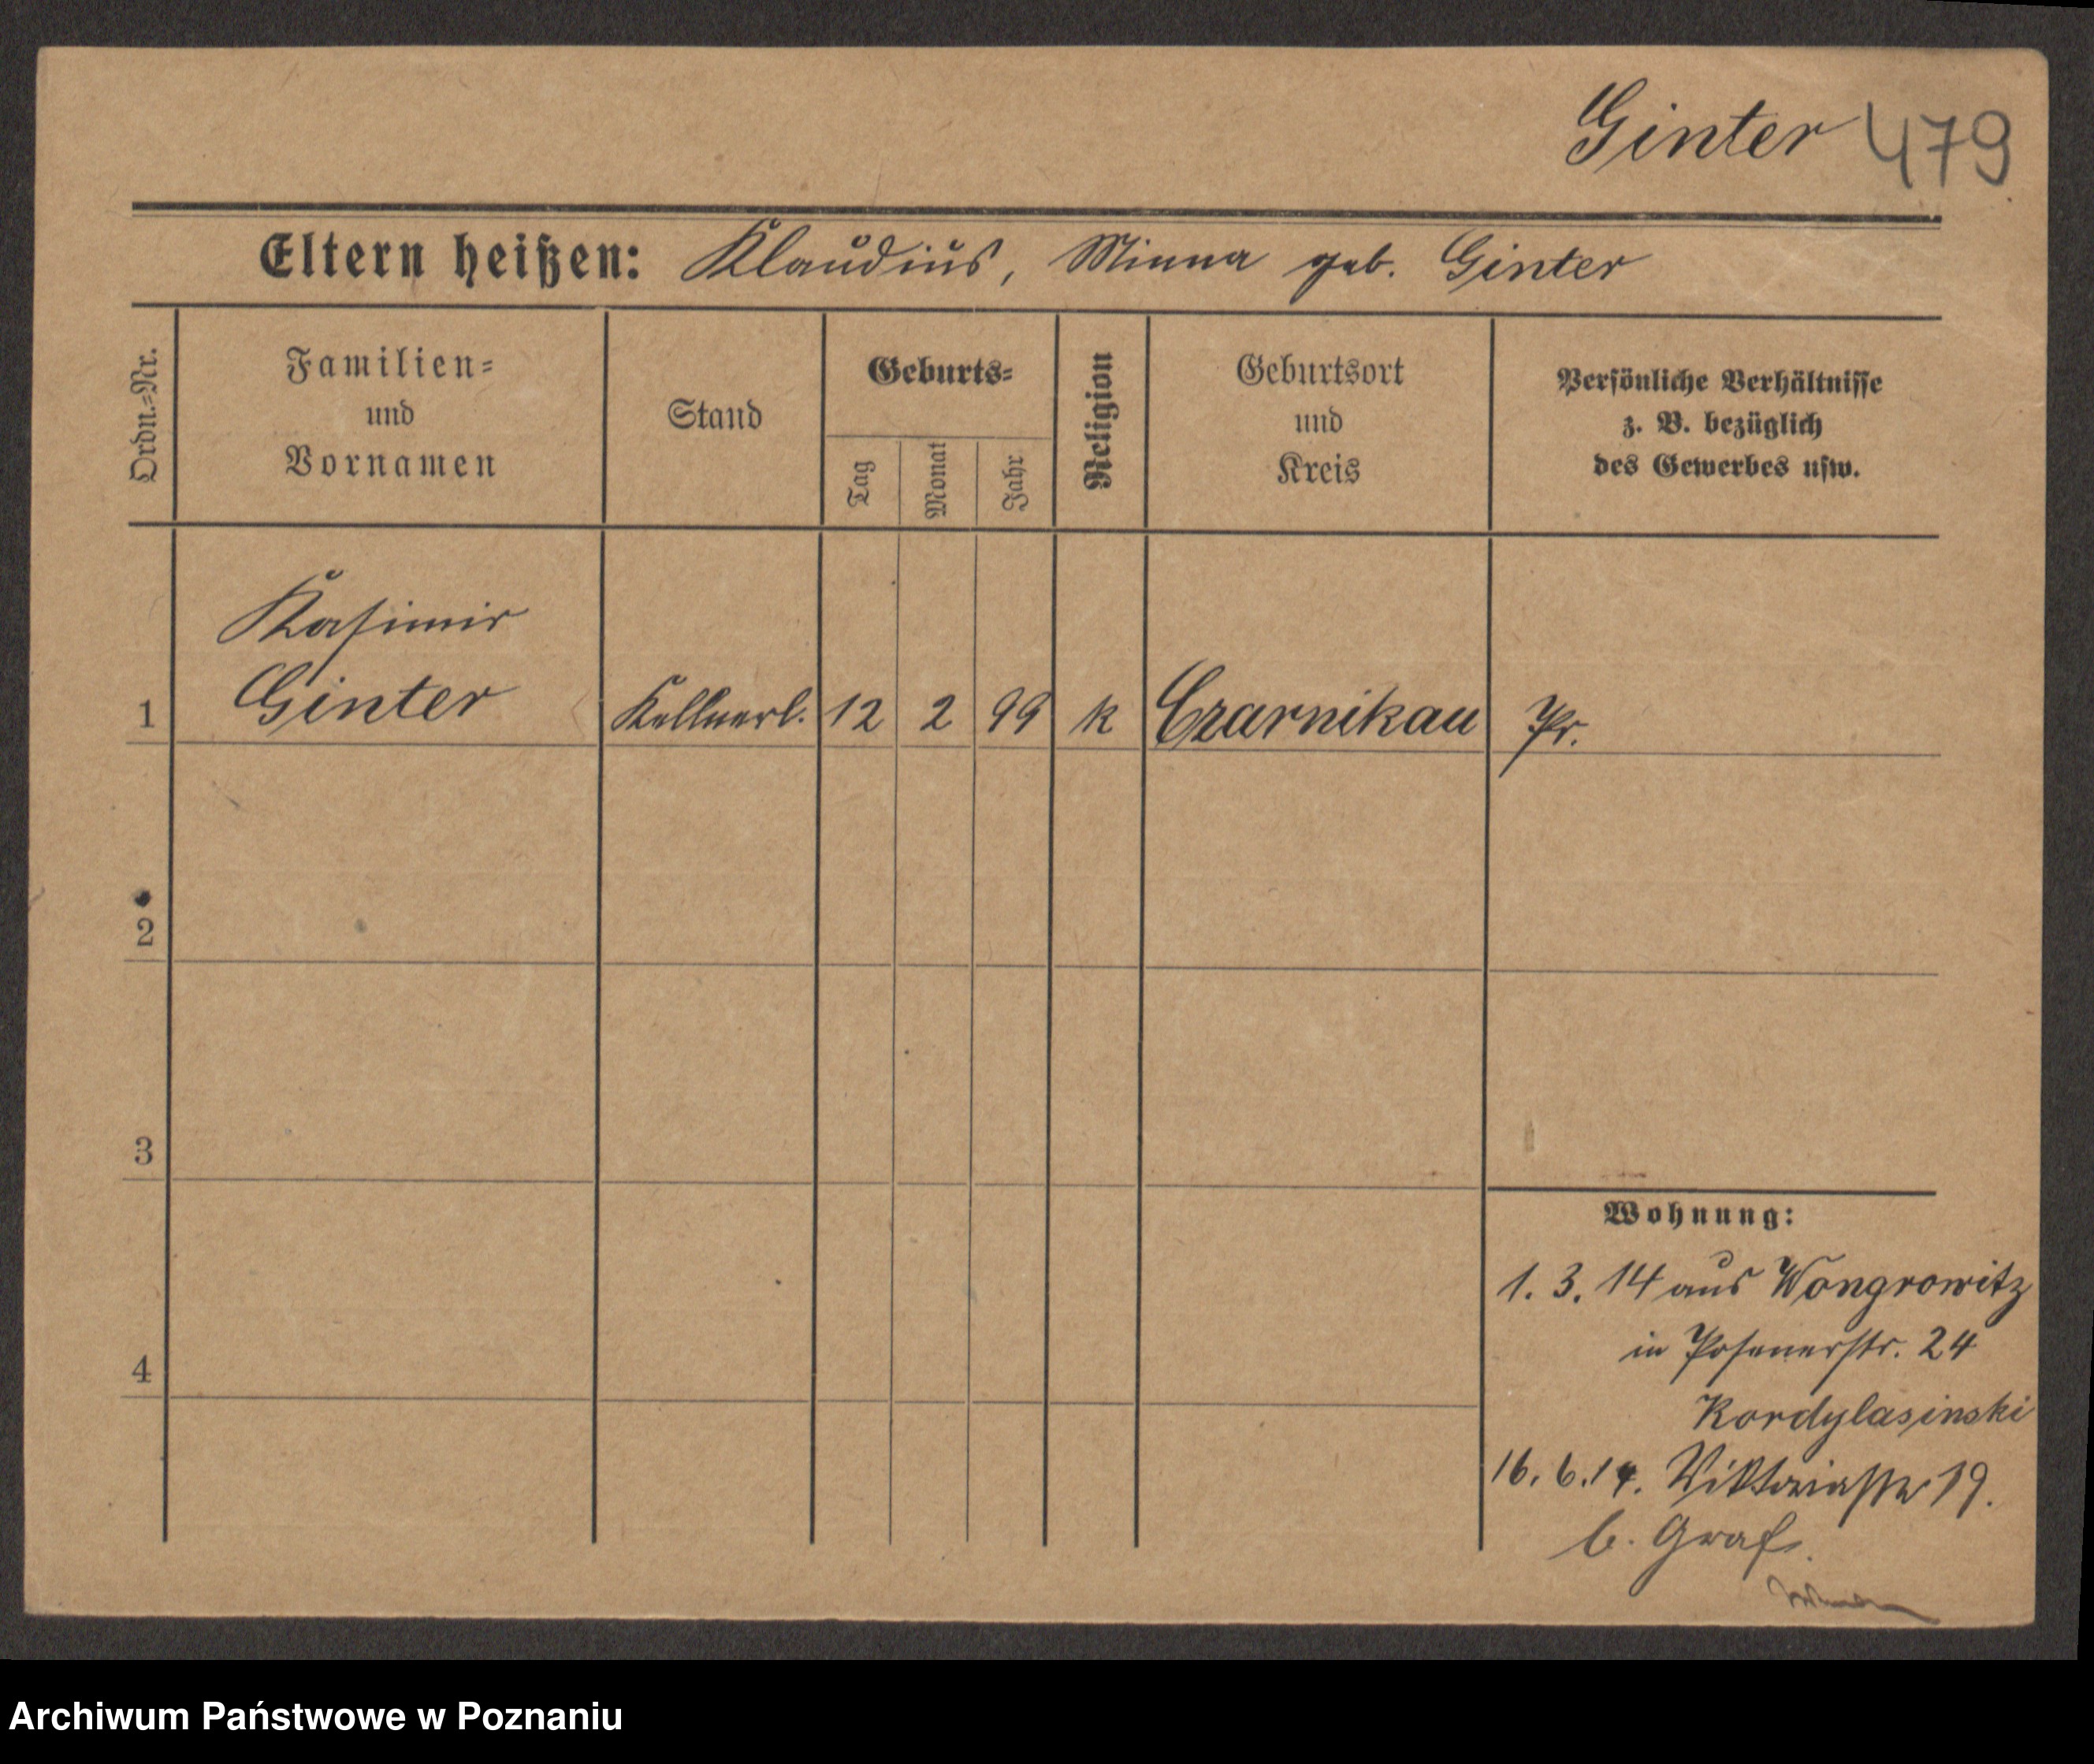 Ginter 479
Eltern heißen: Klaudius, Minna geb. Ginter
Ordn.=Nr.
Familien=
und
Vornamen
Stand
Geburts=
Tag
Monat
Jahr
Religion
Geburtsort
und
Kreis
Persönliche Verhältnisse
z. B. bezüglich
des Gewerbes usw.
Kasimir
1 Ginter Kellnerl. 12 2 99 k Czarnikau Pr.
2
3
4
Wohnung:
1. 3. 14 aus Wongrowitz
in Posenerstr. 24
Kordylasinski
16. 6. 14. Viktoriastr 19.
b. Graf.
Archiwum Państwowe w Poznaniu